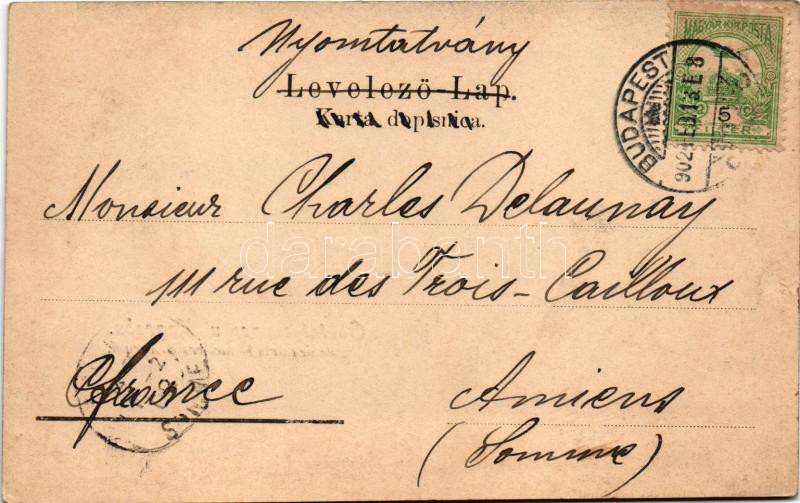 Nyomtatvány
Levelező-Lap.
Karta dopisnica.
MAGYAR KIR. POSTA
5
FILLER
BUDAPEST
Monsieur Charles Delaunay
111 rue des Trois-Cailloux
France
Amiens
(Somme)
darabanth